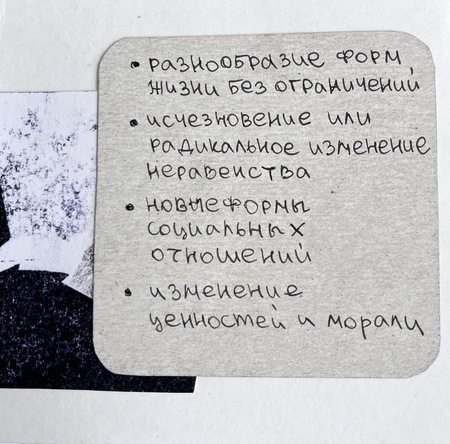 • разнообразие форм
жизни без ограничений
• исчезновение или
радикальное изменение
неравенства
• новые формы
социальных
отношений
• изменение
ценностей и морали